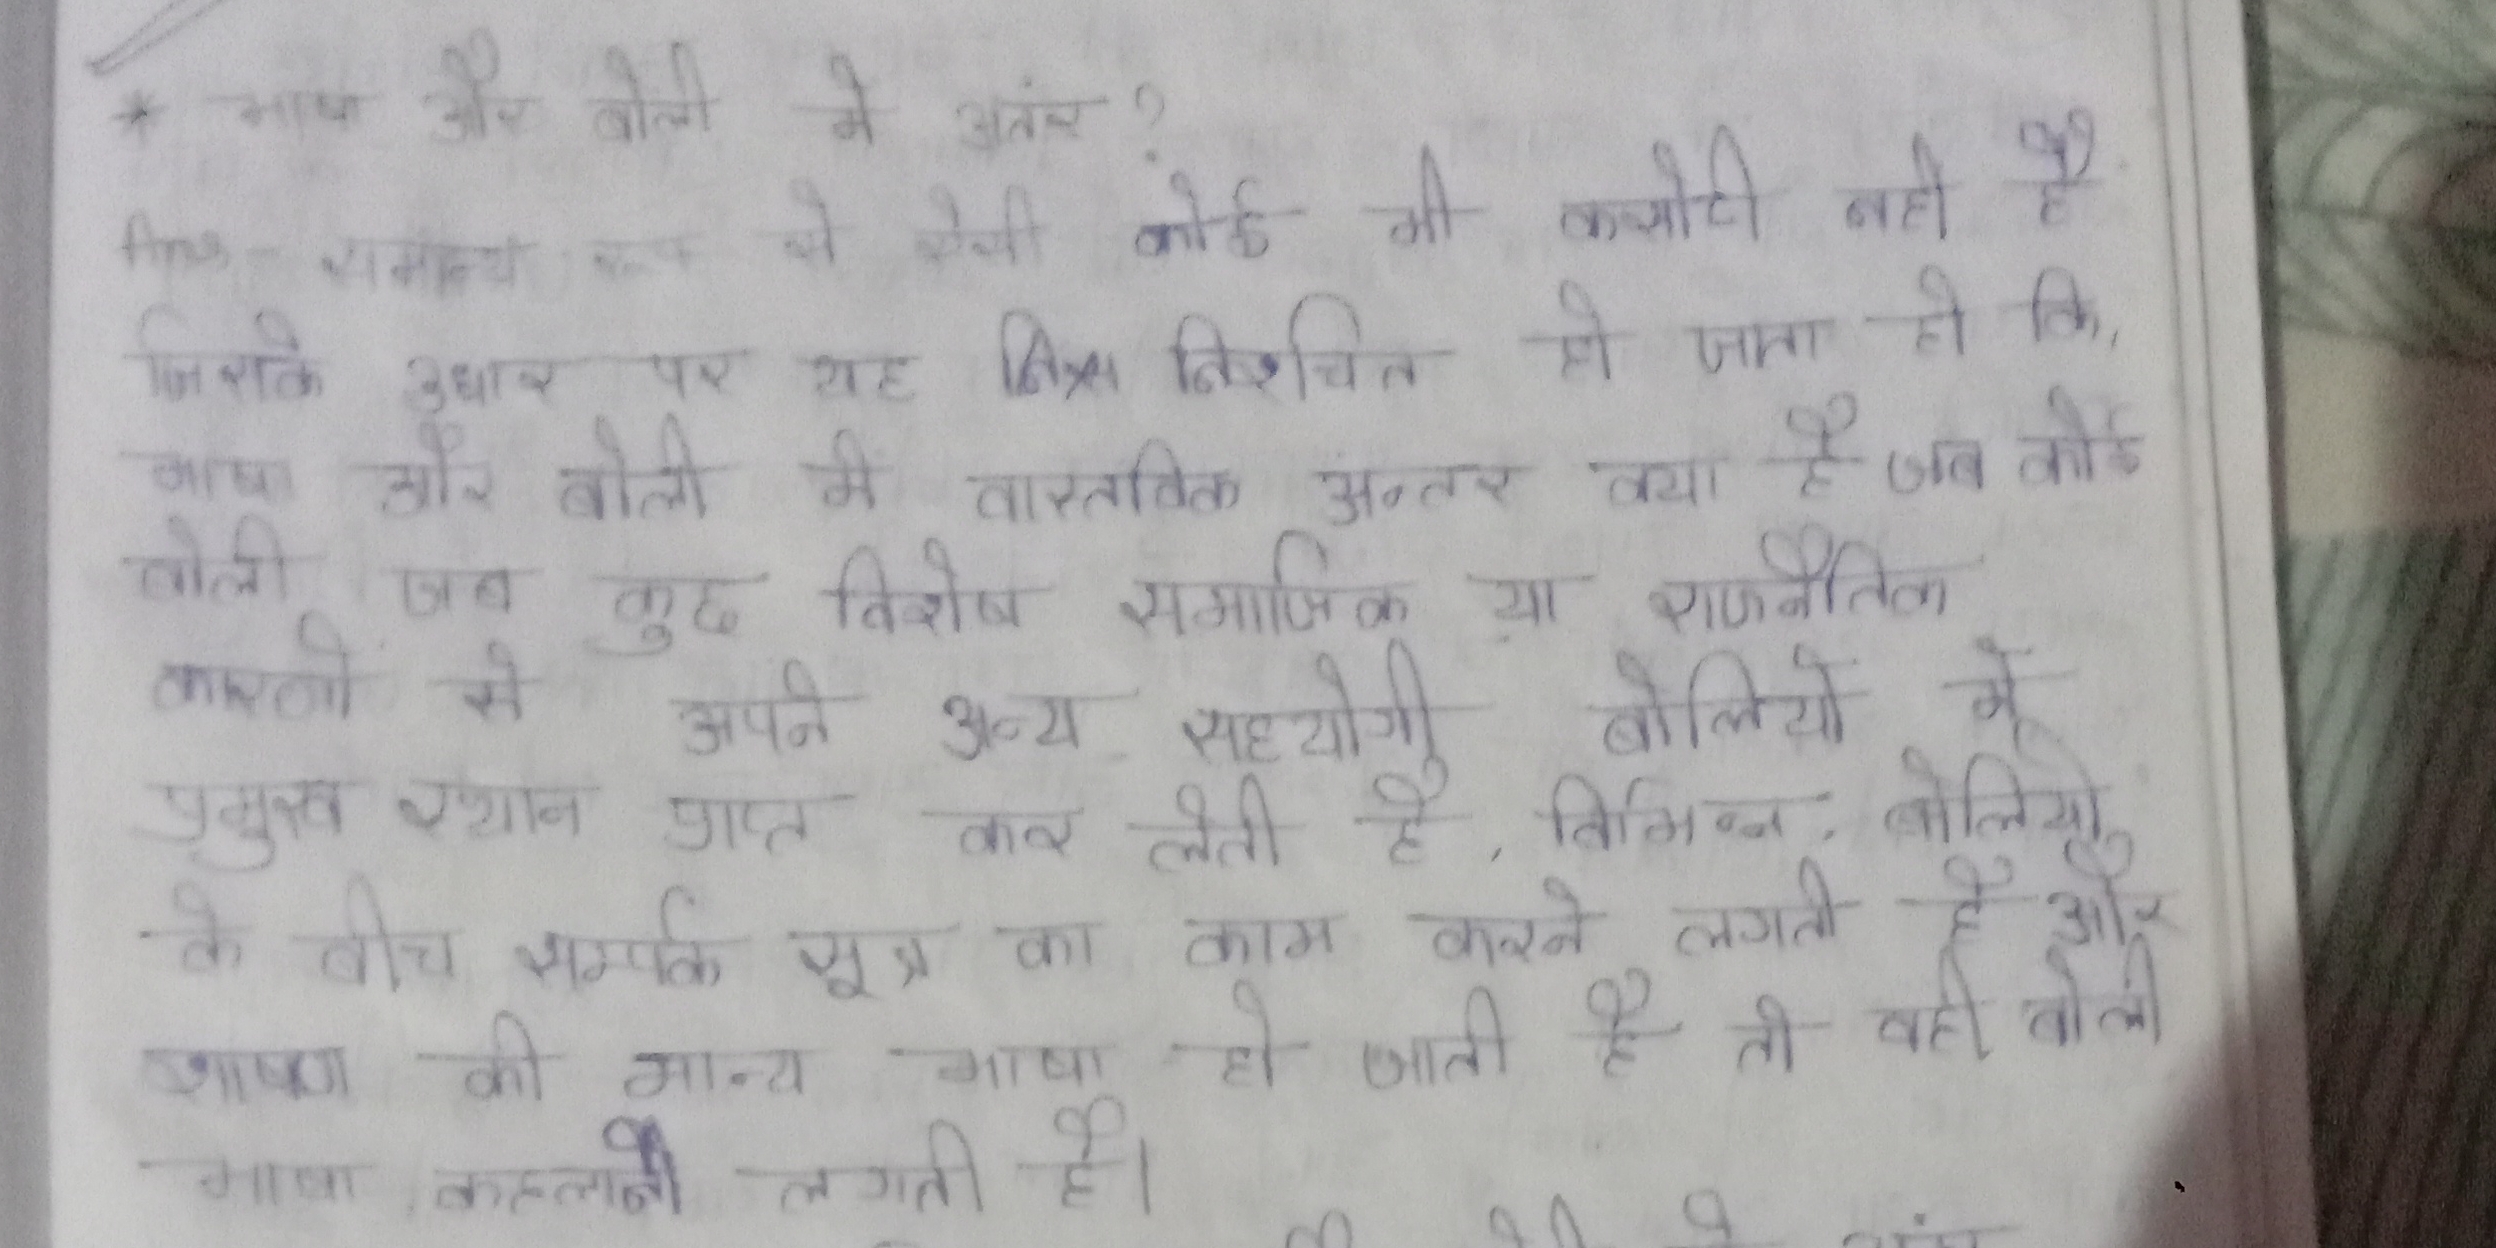 * भाषा और बोली मे अतंर ?
Ans - समान्य रूप से ऐसी कोई भी कसोटी नही है
जिसके उधार पर यह निश्चित हो जाता हो कि,
भाषा और बोली में वास्तविक अन्तर क्या है जब कोई
बोली जब कुछ विशेष समाजिक या राजनैतिक
कारणो से अपने अन्य सहयोगी बोलियो में
प्रमुख स्थान प्राप्त कर लेती है, विभिन्न, बोलियो
के बीच सर्म्पक सूत्र का काम करने लगती है और
भाषण की मान्य भाषा हो जाती है तो वही बोली
भाषा कहलाने लगती है।